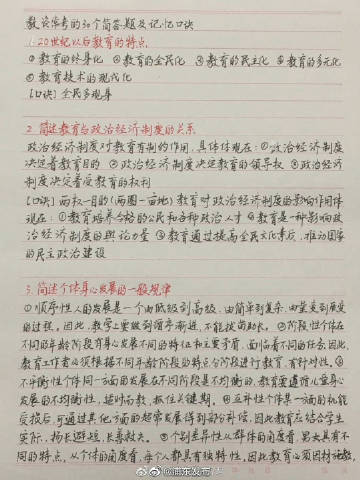 教资常考的30个简答题及记忆口诀
1.20世纪以后教育的特点
①教育的终身化 ②教育的全民化 ③教育的民主化 ④教育的多元化
⑤教育技术的现代化
[口诀] 全民多现身
2.简述教育与政治经济制度的关系
政治经济制度对教育有制约作用,具体体现在:①政治经济制度
决定着教育目的 ②政治经济制度决定教育的领导权 ③政治经济
制度决定着受教育的权利
[口诀] 两权一目的(两圈一亩地) 教育对政治经济制度的影响作用体
现在:①教育培养合格的公民和各种政治人才 ②教育是一种影响政
治经济制度的舆论力量 ③教育通过提高全民文化素质,推动国家
的民主政治建设
3.简述个体身心发展的一般规律
①顺序性人的发展是一个由低级到高级,由简单到复杂,由量变到质变
的过程。因此,教学工要做到循序渐进,不能拔苗助长。②阶段性个体在
不同的年龄阶段有身心发展不同的特征和主要矛盾,面临着不同的任务。因此,
教育工作者必须根据不同年龄阶段的特点分阶段进行教育,有针对性。③
不平衡性个体同一方面的发展在不同阶段是不均衡的,教育要遵循儿童身心
发展的不均衡性,适时而教,抓住关键期。④互补性个体某一方面的机能
受损后,可通过其他方面的超常发展得到部分补偿,因此教育应结合学生
实际,扬长避短,长善救失。⑤个别差异性从群体的角度看,男女具有不
同的特点,从个体的角度看,每个人都具有独特性,因此教育必须因材施教,
@浦东发布